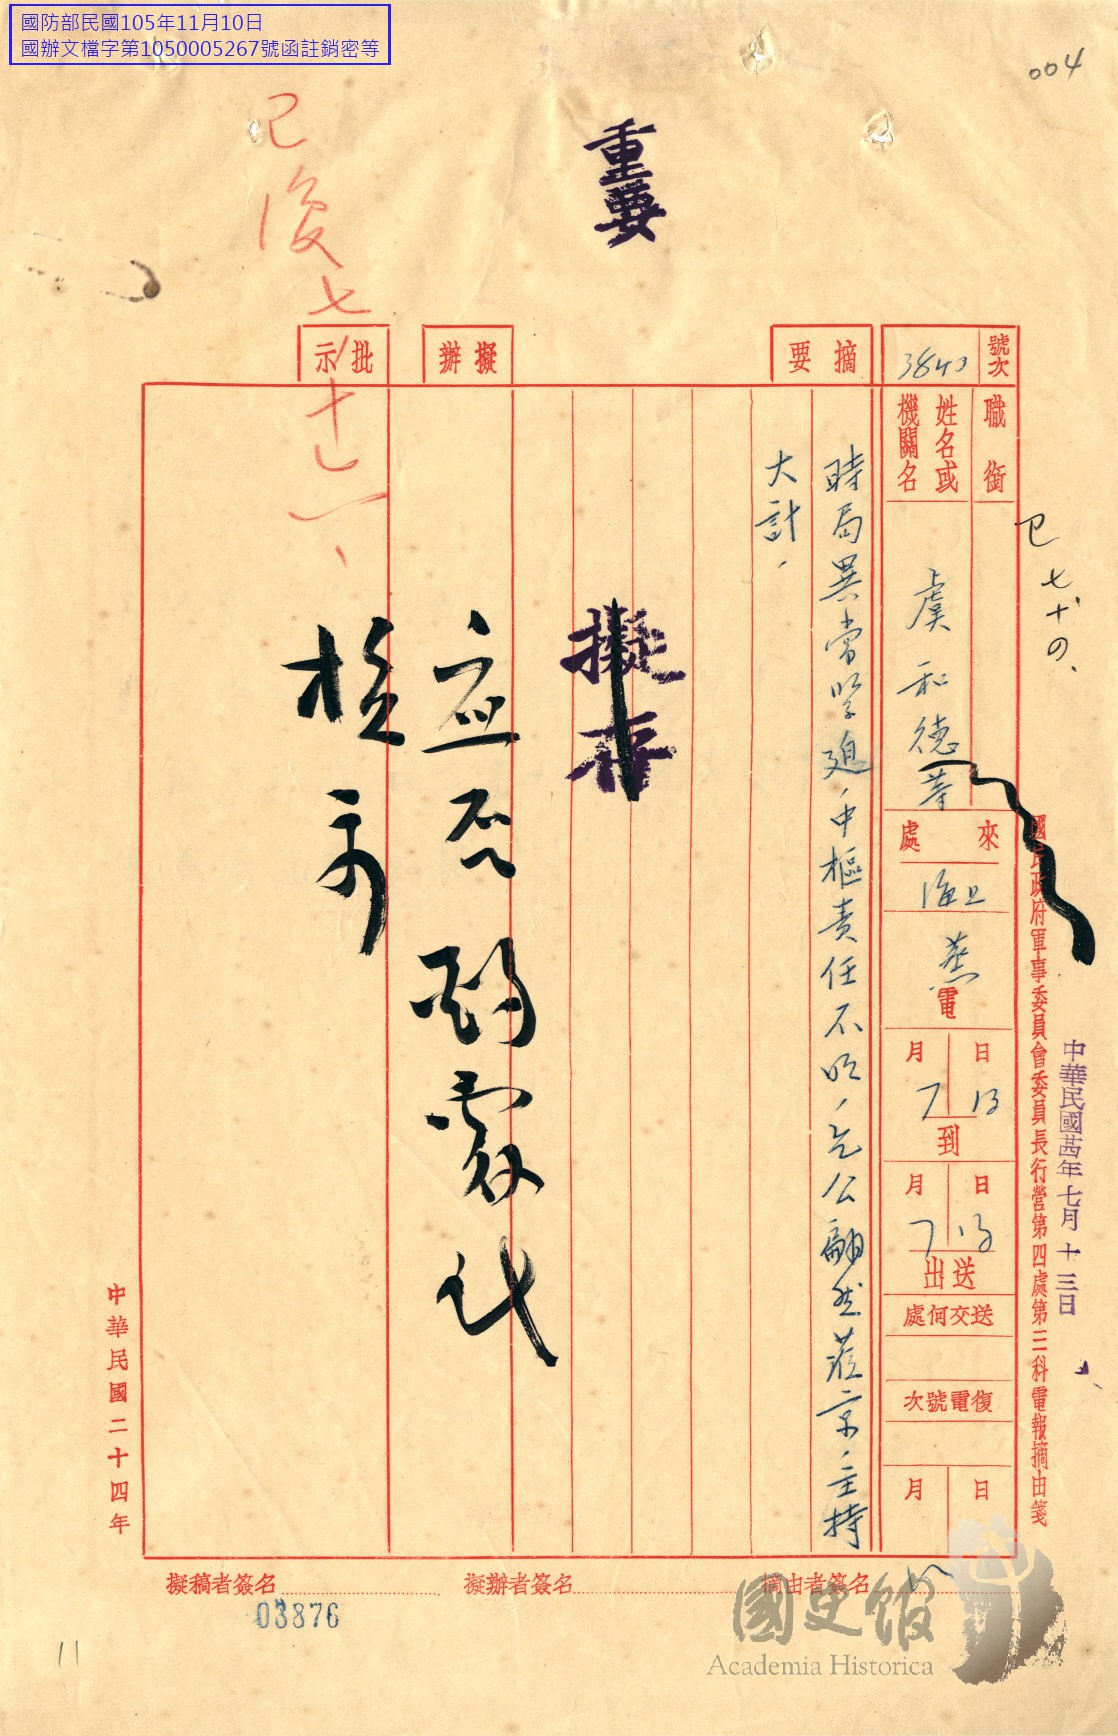 國防部民國105年11月10日
國辦文檔字第1050005267號函註銷密等
004
重要
已復 七、十一、
國民政府軍事委員會委員長行營第四處第三科電報摘由箋
中華民國廿四年七月十三日
七、十四、
號次
3840
職銜
姓名或機關名
虞和德等
來處
滬
電
月 日
7 13
到
月 日
7 13
送出
送交何處
復電號次
月 日
摘要
時局異常緊迫、中樞責任不明、乞公翩然蒞京、主持
大計、
擬存
擬辦
應否酌覆代
批示
核示
中華民國二十四年
摘由者簽名
擬辦者簽名
擬稿者簽名
03876
11
國史館
Academia Historica